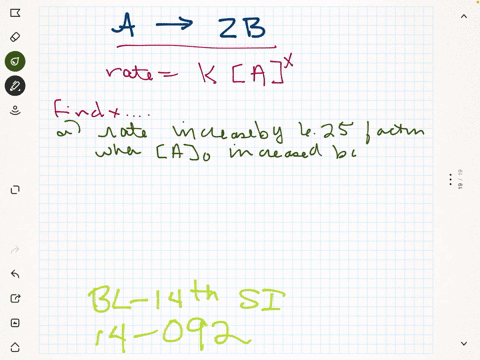 A → 2B
rate = K [A]^x
Find x....
a) rate increase by 6.25 factor
when [A]₀ increased b
BL-14th SI
14-092